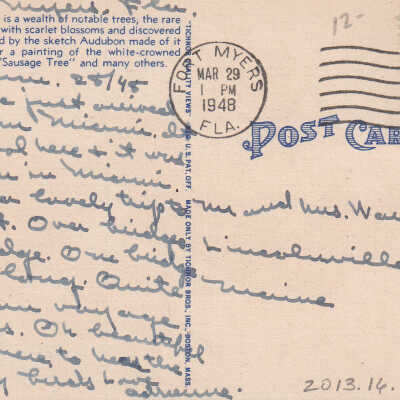 Myers, Fla.
is a wealth of notable trees, the rare
with scarlet blossoms and discovered
d by the sketch Audubon made of it
r a painting of the white-crowned
"Sausage Tree" and many others.
25/48
just arrived
Miami,
here + it was
in Miami.
lovely trip
Over bridge
One bridge
long. Quite
voyage
Oh beautiful
here, to hear the
birds. Love
Adrienne.
QUALITY VIEWS" REG. U. S. PAT. OFF. MADE ONLY BY TICHNOR BROS. INC., BOSTON, MASS.
12-
FORT MYERS
MAR 29
1 PM
1948
FLA.
POST CAR
Mr and Mrs. Wal
Lincolnville
Maine
2013.14.